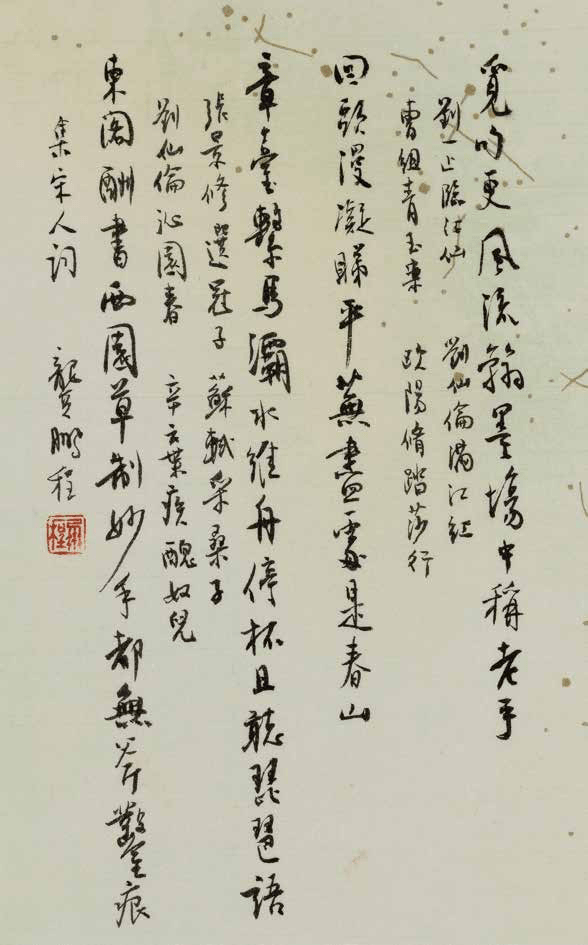 覓句更風流翰墨場中稱老手
劉一止臨江仙 劉仙倫滿江紅
曹組青玉案 歐陽脩踏莎行
回頭漫凝睇平蕪盡處是春山
章臺繫馬灞水維舟停杯且聽琵琶語
張景修選冠子 蘇軾采桑子
劉仙倫沁園春 辛棄疾醜奴兒
東閣酬書西園草制妙手都無斧鑿痕
集宋人詞 龔鵬程